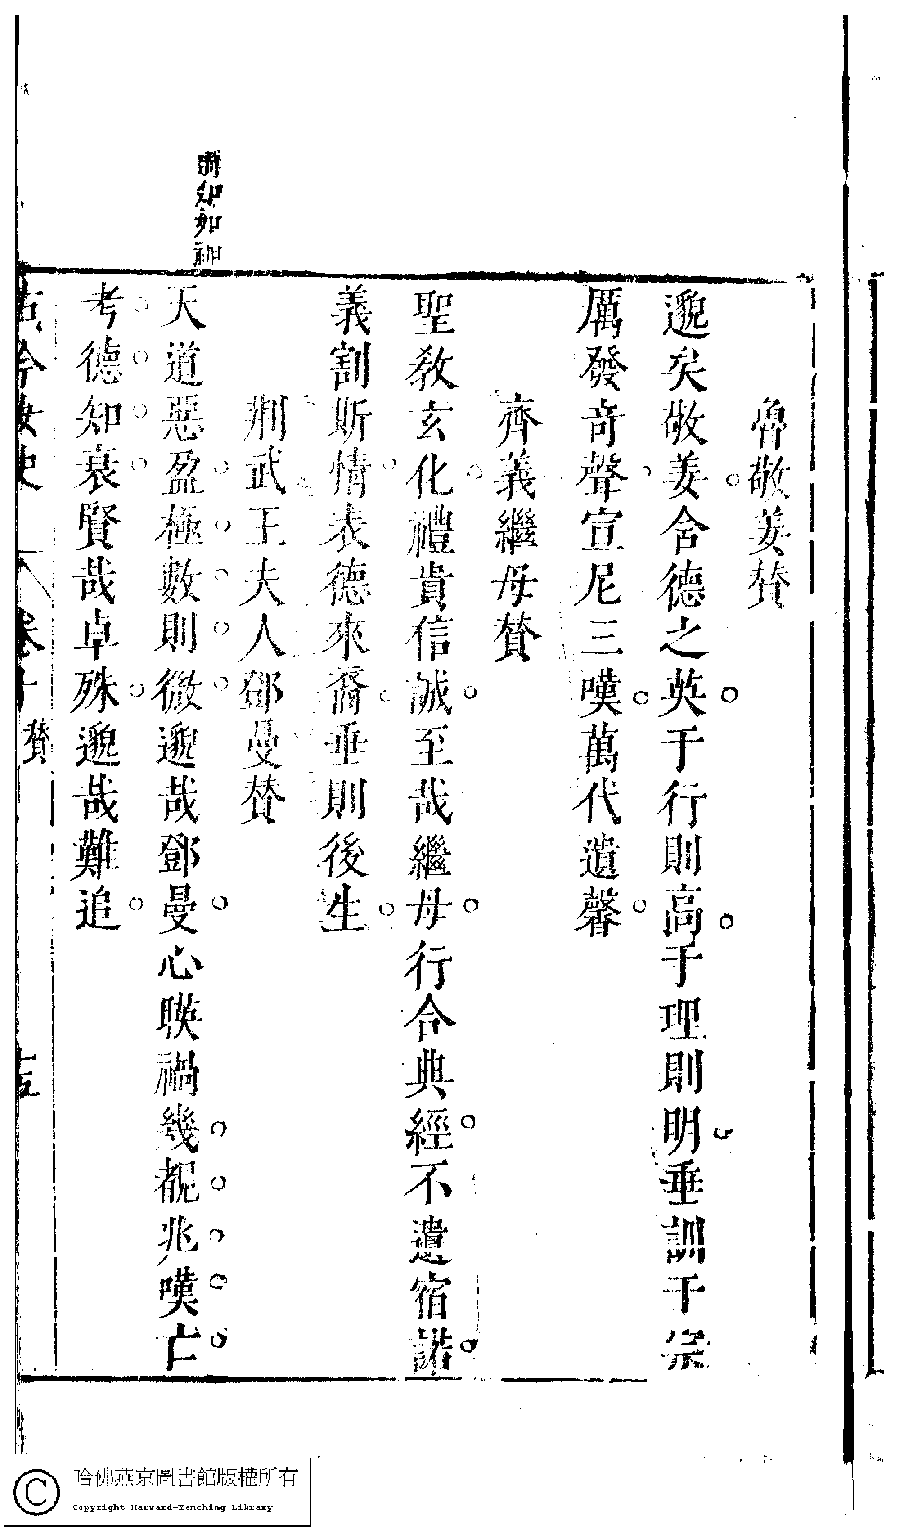 魯敬姜贊
邈矣敬姜含德之英于行則高于理則明垂訓千宗
厲發奇聲宣尼三嘆萬代遺馨
齊義繼母贊
聖教玄化禮貴信誠至哉繼母行合典經不遺宿諾
義割斯情表德來裔垂則後生
荆武王夫人鄧曼贊
天道惡盈極數則微邈哉鄧曼心聮禍幾覩兆嘆亡
考德知衰賢哉卓殊邈哉難追
古今女史 卷十 贊 十五
哈佛燕京圖書館版權所有
Copyright Harvard-Yenching Library